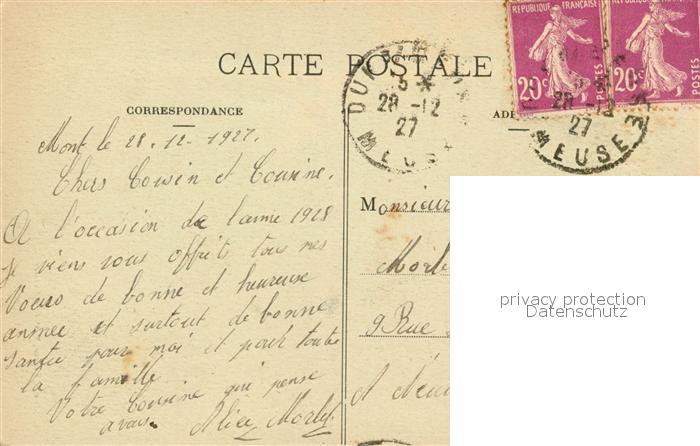 CARTE POSTALE
CORRESPONDANCE
Mont le 28.12-1927.
Chers Cousin et Cousine.
A l'occasion de l'année 1928
Je viens vous offrits tous mes
Voeux de bonne et heureuse
année et surtout de bonne
santée pour moi et pour toute
la famille
Votre cousine qui pense
avous. Alice
REPUBLIQUE FRANÇAISE
20c
POSTES
REPUBLIQUE FRANÇAISE
20c
POSTES
DU
28 -12
27
MEUSE
28 -12
27
MEUSE
ADR
Monsieur
9 Rue
privacy protection
Datenschutz